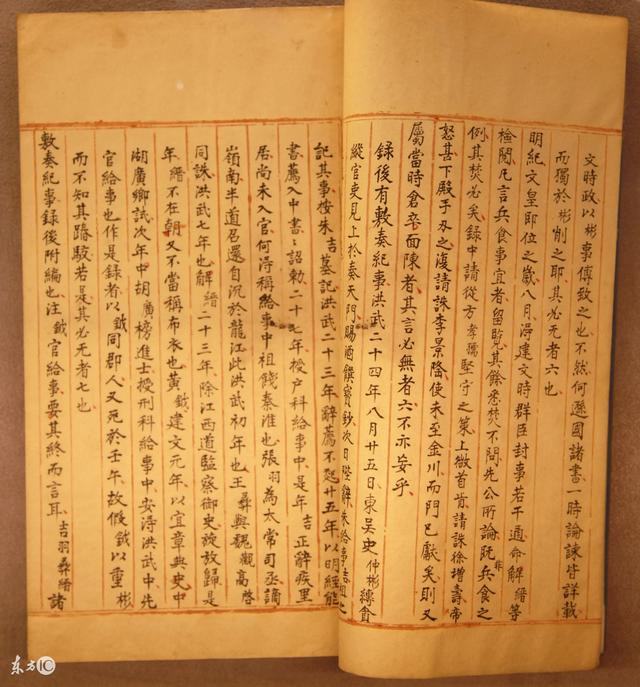 文時政以彬事傳致之也不然何遜國諸書一時論諫皆詳載
而獨於彬削之耶其必无者六也
明紀文皇即位之歲八月淂建文時群臣封事若干通命解縉等
檢閱凡言兵食事宜者留覽其餘悉焚不問先公所論既非兵食之
例其焚必矣録中請從方孝孺堅守之策上微首肯請誅徐增壽帝
怒甚下殿手刃之復請誅李景隆使未至金川而門已獻矣則又
屬當時倉卒面陳者其言必無者六不亦妄乎
録後有敷奏紀事洪武二十四年八月廿五日東吳史仲彬縛貪
縱官吏見上於奉天門賜酒饌寳鈔次日陛辭朱給事吉祖之
記其事按朱吉墓記洪武二十三年辭薦不起廿五年以明經能
書薦入中書〻詔勅二十七年授户科給事中是年吉正辭疾里
居尚未入官何淂稱給事中祖餞秦淮也張羽為太常司丞謫
嶺南半道召還自沉於龍江此洪武初年也王彝與魏觀高啓
同誅洪武七年也解縉二十三年除江西道監察御史旋放歸是
年縉不在朝又不當稱布衣也黄鉞建文元年以宜章典史中
湖廣鄉試次年中胡廣榜進士授刑科給事中安淂洪武中先
官給事也作是録者以鉞同郡人又死於壬午故假鉞以重彬
而不知其踳駁若是其必无者七也
敷奏紀事録後附編也注鉞官給事要其終而言耳吉羽彝縉諸
东方IC